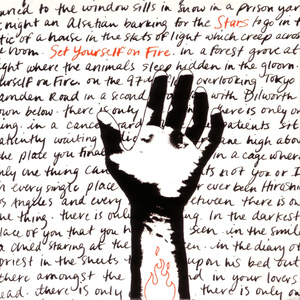 to the window sills in snow in a prison yar
might an Alsatian barking for the Stars to go in t
tic of a house in the slats of light which creep across
room. Set Yourself on Fire. in a forest grove at
ght where the animals sleep hidden in the gloom.
urself on Fire. on the 97th overlooking Tokyo
amden Road in a second with Bilworth
own below. there is only there is only on
ing. in a cance patients sit
atiently waiting ane high above
the place you fina in a cage where
nly one thing can ts not you or I
n every single place ever been throu
os Angeles and every between there is on
ne thing. there is only one thing. In the darkest
lace of you that you h een. in the smile
a child staring at the in the diary o
priest in the sheets upon his bed but
there amongst the nd in your lovers
ead. there is only there is only on